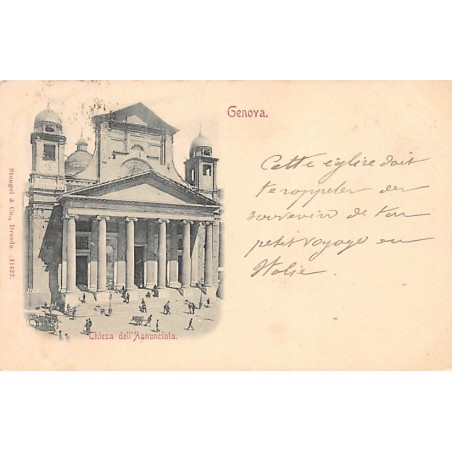 Genova.
Cette église doit
te rappeler des
souvenirs de ton
petit voyage en
Italie.
Chiesa dell'Annunciata.
Stengel & Co., Dresda. 11422.